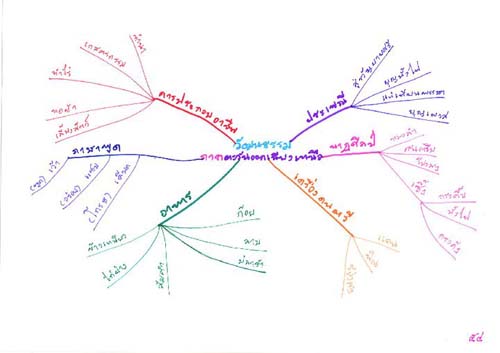 วัฒนธรรม
ภาคตะวันออกเฉียงเหนือ
การประกอบอาชีพ
ทำนา
เกษตรกรรม
ทำไร่
ทอผ้า
เลี้ยงสัตว์
ประเพณี
บุญบั้งไฟ
แห่เทียนพรรษา
บุญผะเหวด
นาฏศิลป์
เซิ้ง
กระติ๊บ
บั้งไฟ
เครื่องดนตรี
แคน
พิณ
โปงลาง
อาหาร
ข้าวเหนียว
ส้มตำ
ก้อย
ลาบ
น้ำตก
ภาษาพูด
เว้า
(พูด)
แซ่บ
(อร่อย)
(โกรธ)
๕๔